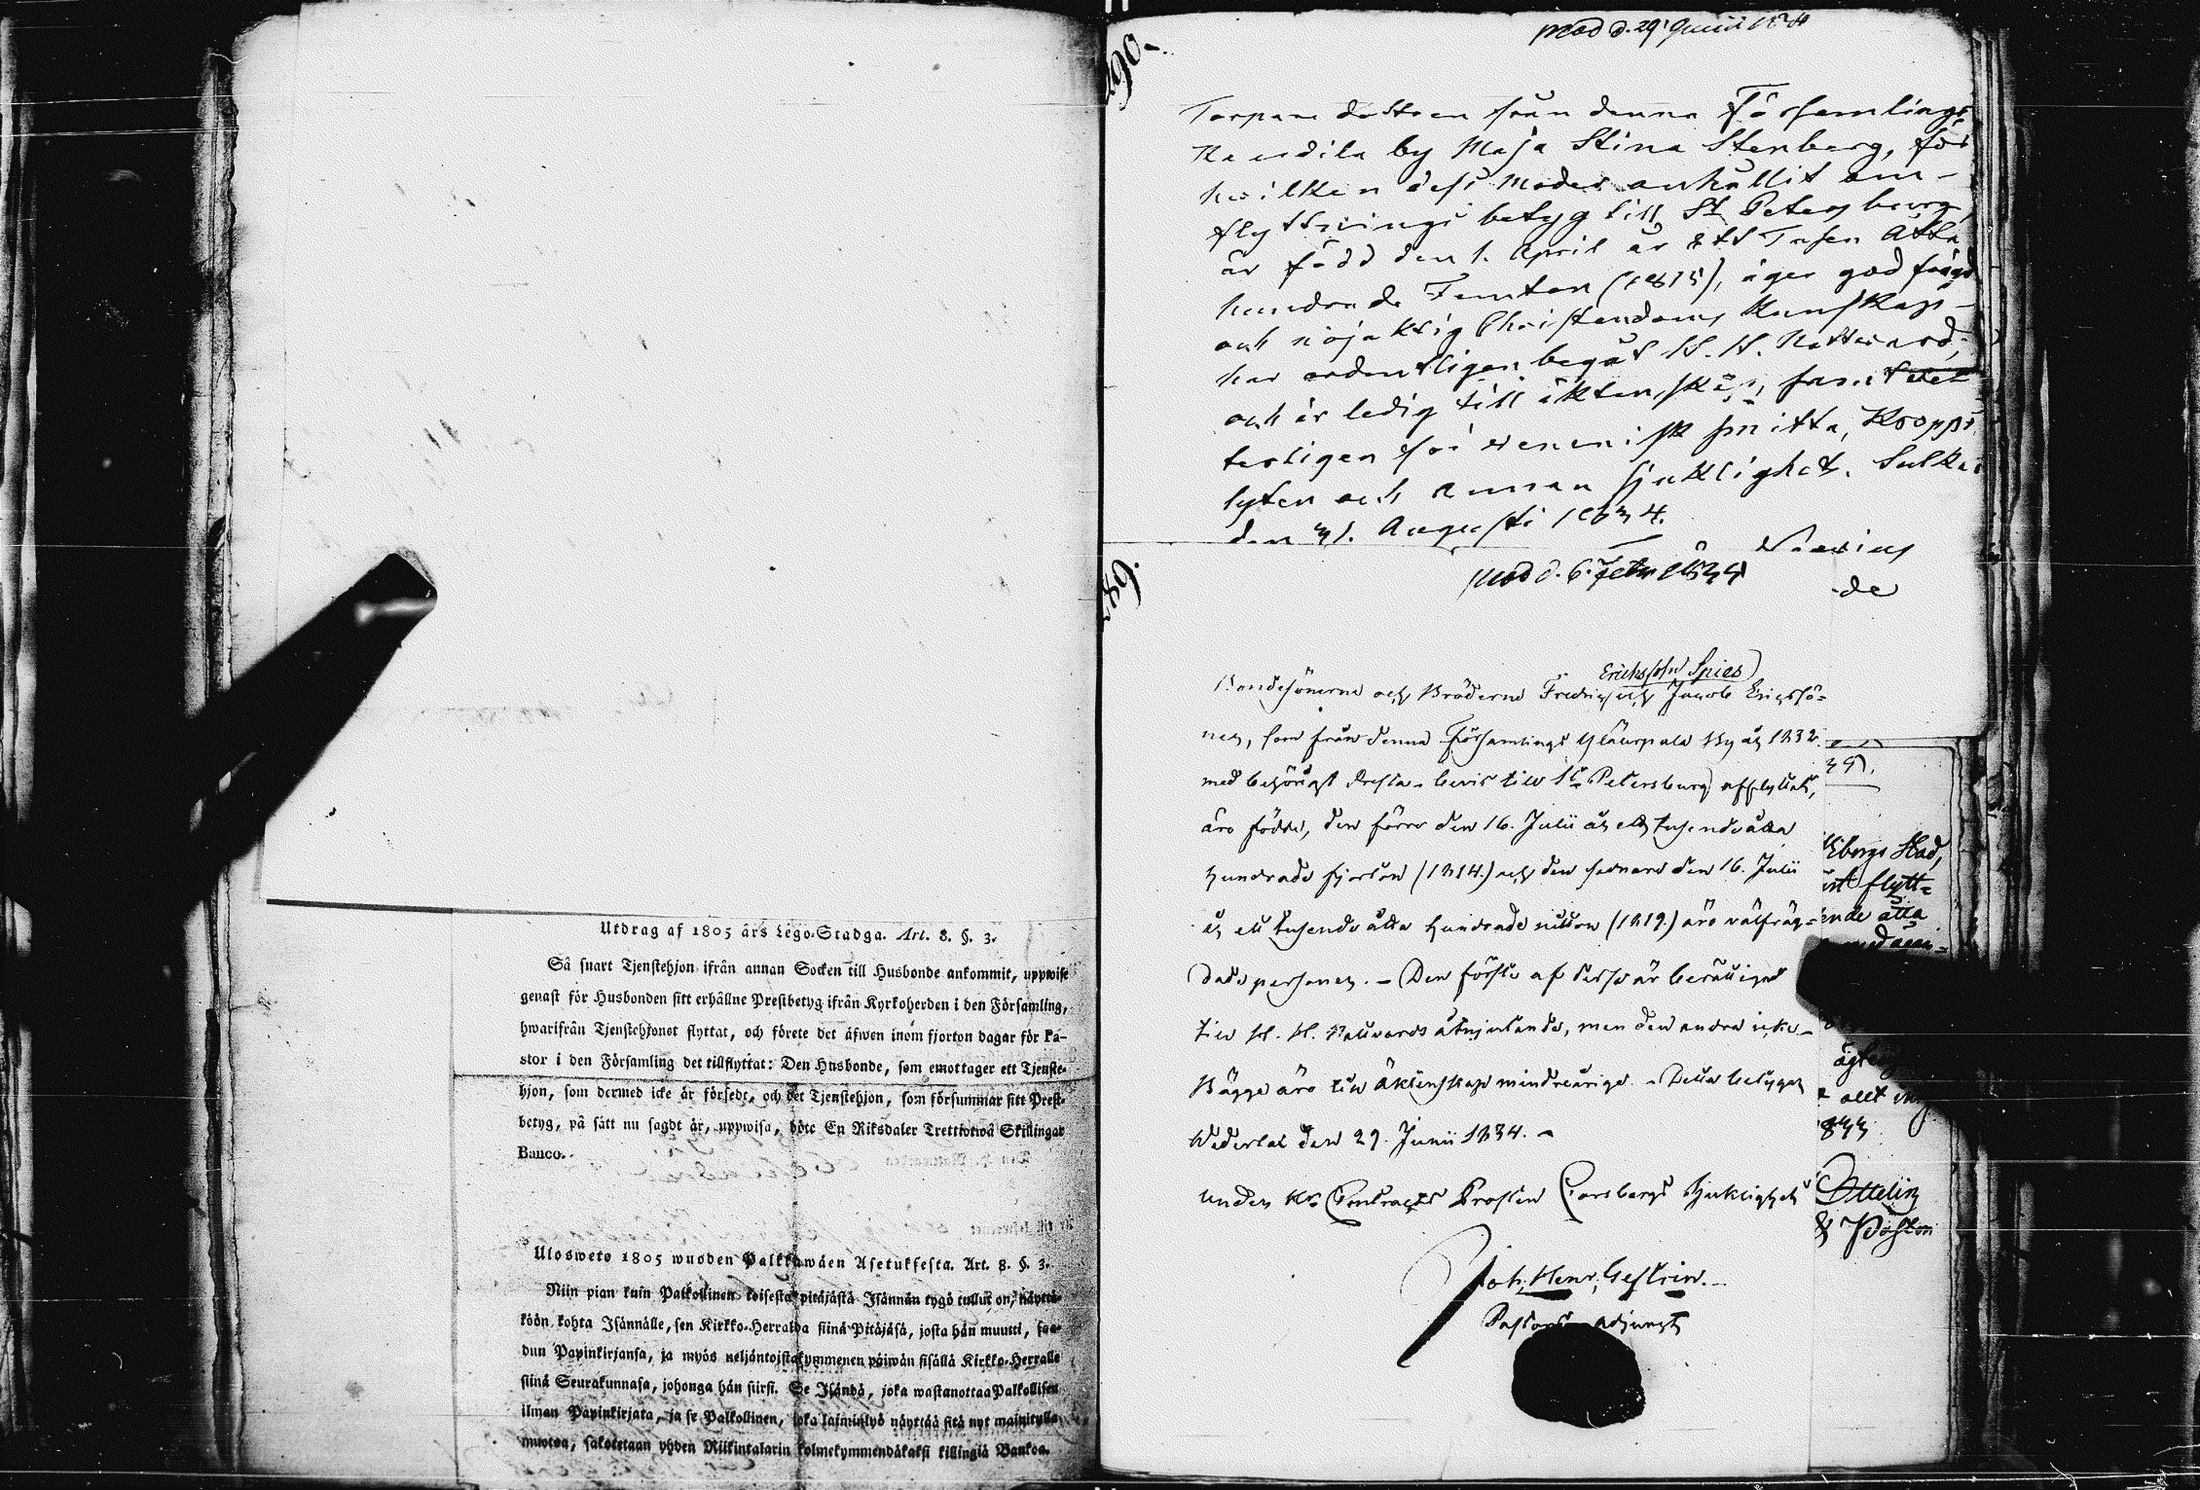 Utdrag af 1805 års Lego-Stadga. Art. 8. §. 3.
Så snart Tjenstehjon ifrån annan Socken till Husbonde ankommit, uppwise
genast för Husbonden sitt erhållne Prestbetyg ifrån Kyrkoherden i den Församling,
hwarifrån Tjenstehjonet flyttat, och förete det äfwen inom fjorton dagar för Pa-
stor i den Församling det tillflyttat: Den Husbonde, som emottager ett Tjenste-
hjon, som dermed icke är försedt, och det Tjenstehjon, som försummar sitt Prest-
betyg, på sätt nu sagdt är, uppwisa, böte En Riksdaler Trettiotwå Skillingar
Banco.
Ulosweto 1805 wuoden Palkkawäen Asetuksesta. Art. 8. §. 3.
Niin pian kuin Palkollinen toisesta pitäjästä Isännän tygö tullut on, näyttä-
köön kohta Isännälle, sen Kirkko-Herralda siinä Pitäjäsä, josta hän muutti, saa-
dun Papinkirjansa, ja myös neljäntoistakymmenen päiwän sisällä Kirkko-Herralle
siinä Seurakunnasa, johonga hän siirsi. Se Isändä, joka wastanottaa Palkollisen
ilman Papinkirjata, ja se Palkollinen, joka laiminlyö näyttää sitä nyt mainitulla
muotoa, sakotetaan yhden Riikintalarin kolmekymmendäkaksi killingiä Bankoa.
290.
prod d. 29
Torpare dottren från denna Församlings
by Maja Stina Stenberg, för
hvilken dess Moder anhållit om
flyttnings betyg till St Petersburg,
är född den 1. April år Ett Tusen Åtta
hundrade Femton (1815), äger god frägd
och nöjaktig Christendoms kunskap
har ordentligen begåt H. H. Nattvard,
och är ledig till äktenskap, samt
för venerisk smitta, Kropps
lyten och annan sjuklighet. Sulkava
den 31. Augusti 1834.
prod d. 6.
Erichssöhn Spies
Bondesönerne och Bröderne Fredric och Jacob Ericssö-
ner, som från denna Församlings By år 1832
med behörigt Presta-bevis till St Petersburg afflyttat,
äro födde, den förre den 16. Julii år ett tusende åtta
hundrade fjorton (1814.) och den sednare den 16. Julii
år ett tusende åtta hundrade nitton (1819.) äro välfräg-
dade personer. – Den förste af desse är berättigad
till H. H. Nattvards åtnjutande, men den andra icke –
Bägge äro till Äktenskap mindreårige. – Detta betygar
den 29. Junii 1834. –
under Hr Contracts Prosten Forsbergs Sjuklighet
Joh. Henr. Gestrin.
Pastors Adjunct
stad,
flytt-
ende åtta
allt
833
Ottelin